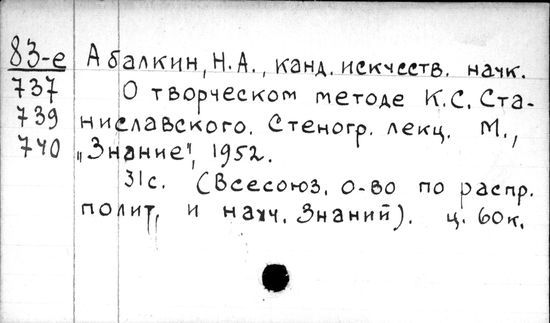 83-е Абалкин, Н.А., канд. искусств. наук.
737 О творческом методе К.С. Ста-
739 ниславского. Стеногр. лекц. М.,
740 „Знание", 1952.
31с. (Всесоюз. о-во по распр.
полит. и науч. Знаний). ц. 60к.